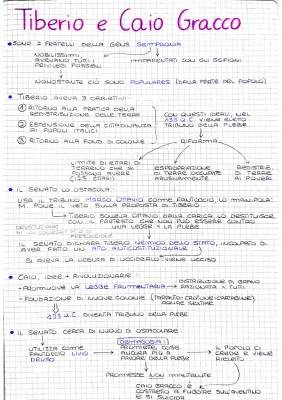 Tiberio e Caio Gracco
• SONO 2 FRATELLI DELLA GENS SEMPRONIA
NOBILISSIMI,
AVEVANO TUTTI I
PRIVILEGI POSSIBILI
IMPARENTATI CON GLI SCIPIONI
NONOSTANTE CIÒ SONO POPULARES (DALLA PARTE DEL POPOLO)
• TIBERIO AVEVA 3 OBIETTIVI:
① RITORNO ALLA PRATICA DELLA
REDISTRIBUZIONE DELLE TERRE
② ESTENSIONE DELLA CITTADINANZA
AI POPOLI ITALICI
③ RITORNO ALLA FOND. DI COLONIE
CON QUESTI IDEALI, NEL
133 a.C. VIENE ELETTO
TRIBUNO DELLA PLEBE
RIFORMA
LIMITE DI ETTARI DI
TERRENO CHE SI
POSSANO AVERE
(125 ETTARI)
ESPROPRIAZIONE
DI TERRE OCCUPATE
ABUSIVAMENTE
REDISTRIB.
DI TERRE
AI POVERI
• IL SENATO LO OSTACOLA:
USA IL TRIBUNO MARCO OTTAVIO COME FANTOCCIO, LO MANIPOLA:
M. PONE IL VETO SULLA PROPOSTA DI TIBERIO
TIBERIO SOLLEVA OTTAVIO DALLA CARICA, LO DESTITUISCE
CON IL PRETESTO CHE NON PUÒ ESSERE CONTRO
UNA LEGGE X LA PLEBE
IL SENATO DICHIARA TIBERIO NEMICO DELLO STATO, INCOLPATO DI
AVER FATTO UN ATTO ANTICOSTITUZIONALE
SI AVEVA LA LICENZA DI UCCIDERLO → VIENE UCCISO
• CAIO, IDEE + RIVOLUZIONARIE:
- PROMUOVE LA LEGGE FRUMENTARIA
DISTRIBUZIONE DI GRANO
RAZIONATA X TUTTI
- FONDAZIONE DI NUOVE COLONIE
123 a.C. DIVENTA TRIBUNO DELLA PLEBE
• IL SENATO CERCA DI NUOVO DI OSTACOLARE
DEMAGOGIA:
UTILIZZA COME
FANTOCCIO LIVIO
DRUSO
PROMETTE COSE
ANCORA PIÙ A
FAVORE DELLA PLEBE
IL POPOLO CI
CREDE E VIENE
RICEVUTO
PROMESSE NON MANTENUTE
CAIO GRACCO È
COSTRETTO A FUGGIRE SULL'AVENTINO
E SI SUICIDA